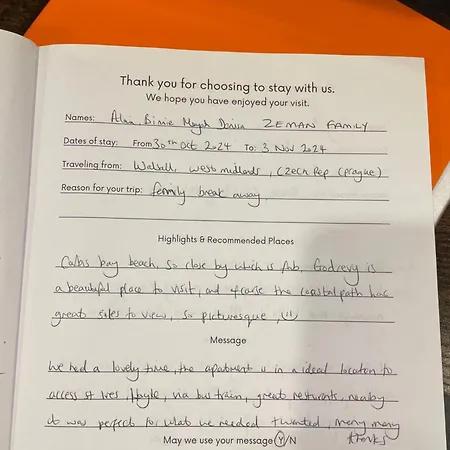 Thank you for choosing to stay with us.
We hope you have enjoyed your visit.
Names: ZEMAN FAMILY
Dates of stay: From 30th Oct 2024 To: 3 Nov 2024
Traveling from: Walsall, West midlands, Czech Rep (Prague)
Reason for your trip: family break away.
Highlights & Recommended Places
Carbis bay beach, so close by which is fab, Godrevy is
a beautiful place to visit, and of course the coastal path has
great sites to view, so picturesque,
Message
We had a lovely time, the apartment is in a ideal location to
access St Ives, Hayle, via bus train, great resturants, nearby
it was perfect for what we needed + wanted, many many
thanks
May we use your message Y/N